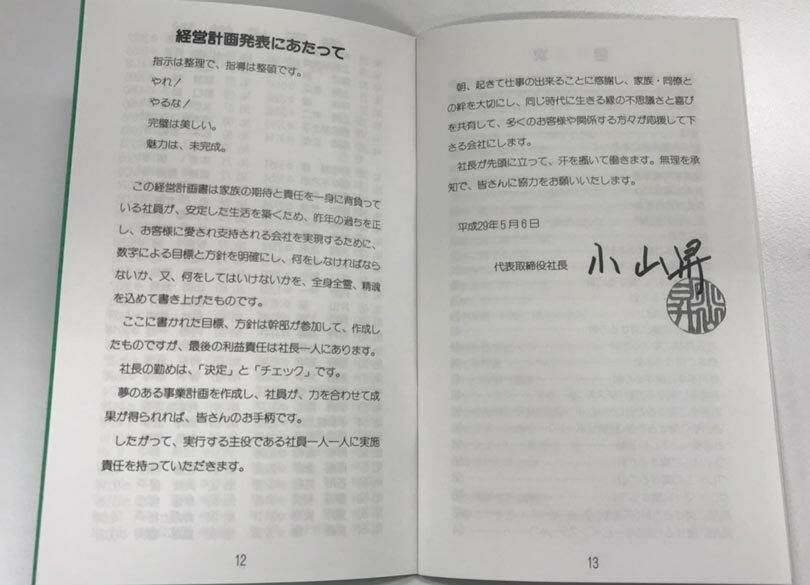 経営計画発表にあたって
指示は整理で、指導は整頓です。
やれ！
やるな！
完璧は美しい。
魅力は、未完成。
この経営計画書は家族の期待と責任を一身に背負って
いる社員が、安定した生活を築くため、昨年の過ちを正
し、お客様に愛され支持される会社を実現するために、
数字による目標と方針を明確にし、何をしなければなら
ないか、又、何をしてはいけないかを、全身全霊、精魂
を込めて書き上げたものです。
ここに書かれた目標、方針は幹部が参加して、作成し
たものですが、最後の利益責任は社長一人にあります。
社長の勤めは、「決定」と「チェック」です。
夢のある事業計画を作成し、社員が、力を合わせて成
果が得られれば、皆さんのお手柄です。
したがって、実行する主役である社員一人一人に実施
責任を持っていただきます。
12
朝、起きて仕事の出来ることに感謝し、家族・同僚と
の絆を大切にし、同じ時代に生きる縁の不思議さと喜び
を共有して、多くのお客様や関係する方々が応援して下
さる会社にします。
社長が先頭に立って、汗を掻いて働きます。無理を承
知で、皆さんに協力をお願いいたします。
平成29年5月6日
代表取締役社長 小山昇
13